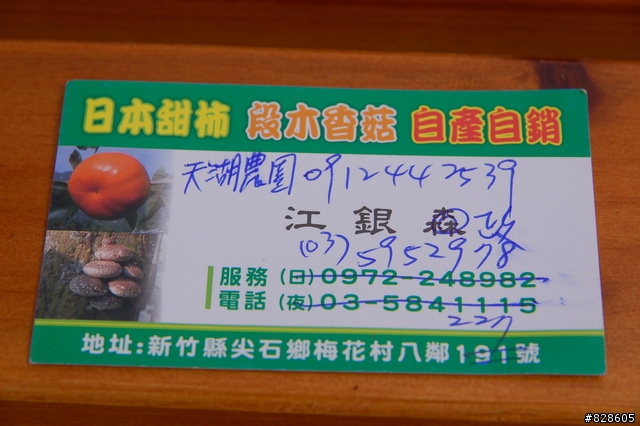 日本甜柿 段木香菇 自產自銷
天湖農園 0912442539
江銀森
(03) 5952978
服務 (日) 0972-248982
電話 (夜) 03-5841115
227
地址:新竹縣尖石鄉梅花村八鄰191號
#828605